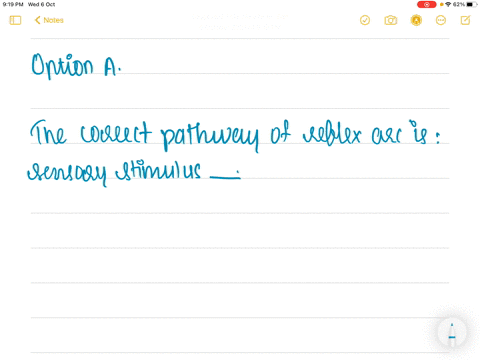 9:19 PM Wed 6 Oct
62%
Notes
Option A.
The correct pathway of reflex arc is:
sensory stimulus —